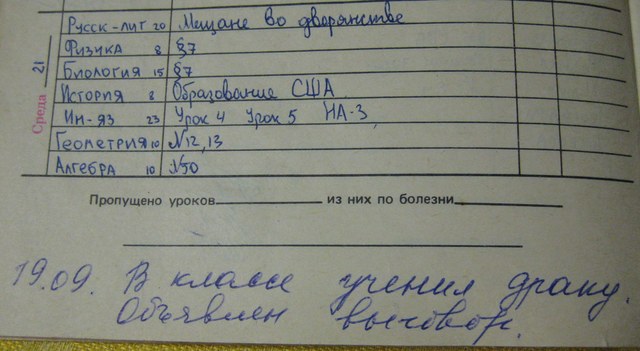 Среда 21
Русск-лит 20 Мещане во дворянстве
Физика 8 §7
Биология 15 §7
История 8 Образование США
Ин-яз 23 Урок 4 Урок 5 НА-3
Геометрия 10 №12,13
Алгебра 10 №50
Пропущено уроков из них по болезни
19.09. В классе учинил драку.
Объявлен выговор.